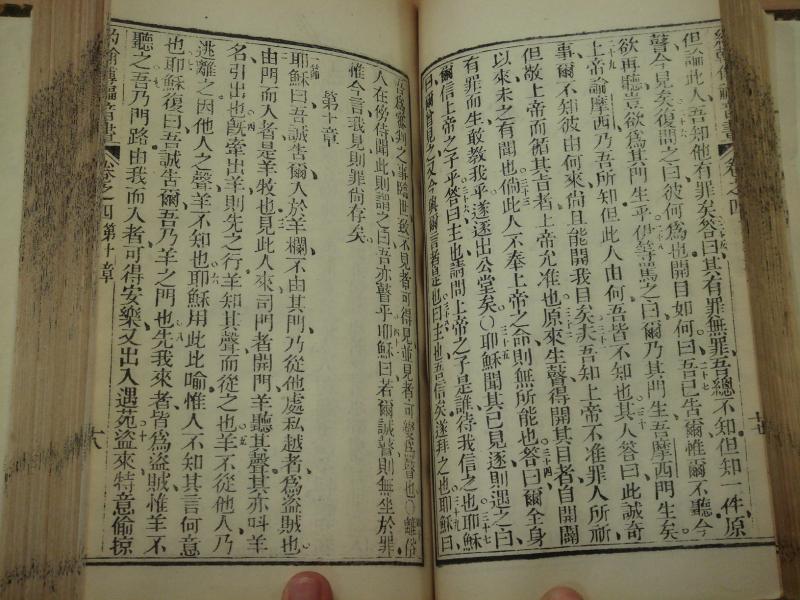 但論此人吾知他有罪矣答曰其有罪無罪吾總不知但知一件原
瞽今見矣復問之曰彼何為也開目如何曰吾已告爾惟爾不聽今
欲再聽豈欲為其門生乎伊等罵之曰爾乃其門生吾摩西門生矣
上帝諭摩西乃吾所知但此人由何吾皆不知也其人答曰此誠奇
事爾不知彼由何來尚且能開我目矣夫吾知上帝不准罪人所祈
但敬上帝而循其旨者上帝允准也原來生瞽得開其目者自開闢
以來未之有聞也倘此人不奉上帝之命則無所能也答曰爾全身
有罪而生敢教我乎遂逐出公堂矣〇耶穌聞其已見逐則遇之曰
爾信上帝之子乎答曰主也請問上帝之子是誰待我信之也耶穌
曰爾曾見之又今與爾言者是也曰主也吾信矣遂拜之也耶穌曰
人在傍侍聞此則謂之曰吾亦瞽乎耶穌曰若爾誠瞽則無坐於罪
惟今言我見則罪尚存矣
第十章
一節
耶穌曰吾誠告爾人於羊欄不由其門乃從他處私越者為盜賊也
由門而入者是羊牧也見此人來司門者開門羊聽其聲其亦呌羊
名引出也旣牽出羊則先之行羊知其聲而從之也羊不從他人乃
逃離之因他人之聲羊不知也耶穌用此比喻惟人不知其言何意
也耶穌復曰吾誠告爾吾乃羊之門也先我來者皆為盜賊惟羊不
聽之吾乃門路由我而入者可得安樂又出入遇苑盜來特意偷掠
約翰傳福音書 卷之四 第十章
六